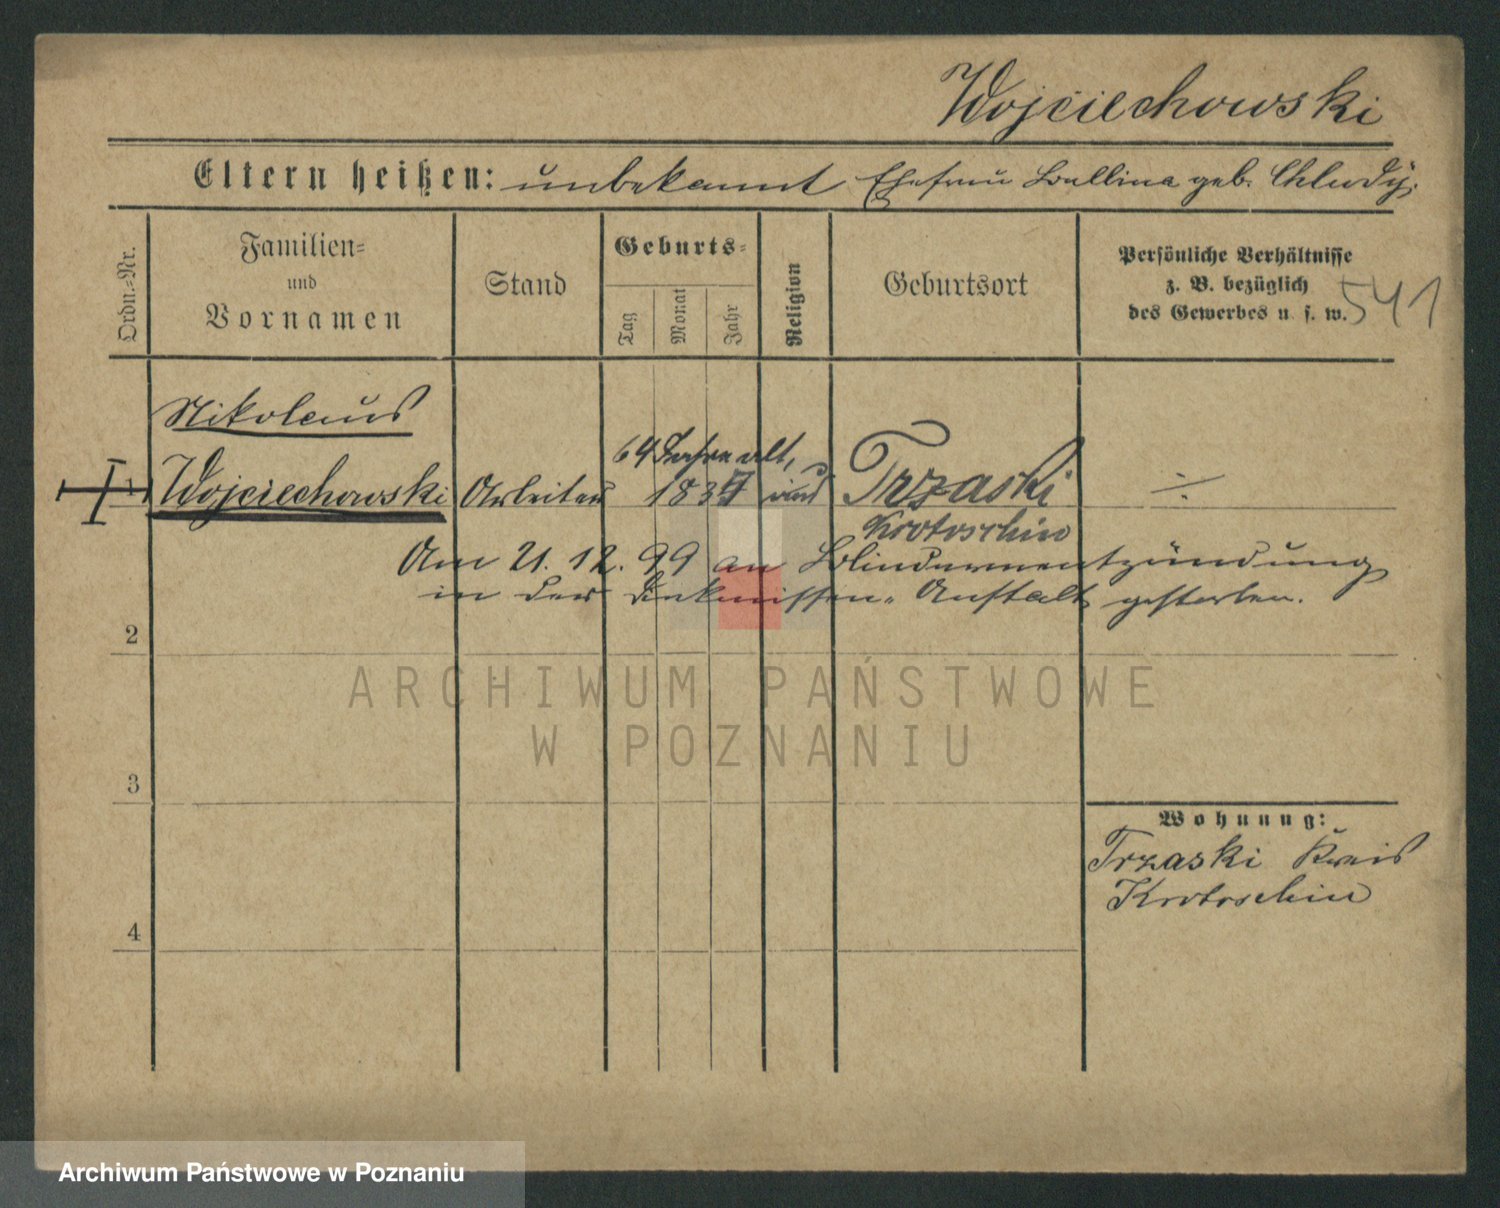 Wojciechowski
Eltern heißen: unbekannt Ehefrau geb. Chludy.
Ordn.-Nr.
Familien-
und
Vornamen
Stand
Geburts-
Tag
Monat
Jahr
Religion
Geburtsort
Persönliche Verhältnisse
z. B. bezüglich
des Gewerbes u. s. w.
541
Nikolaus
64 Jahre alt,
1 Wojciechowski Arbeiter 183 Trzaski ÷
Krotoschin
Am 21. 12. 99 an Blinddarmentzündung
in der Diakonissen-Anstalt gestorben.
2
ARCHIWUM PAŃSTWOWE
W POZNANIU
3
Wohnung:
Trzaski Kreis
Krotoschin
4
Archiwum Państwowe w Poznaniu